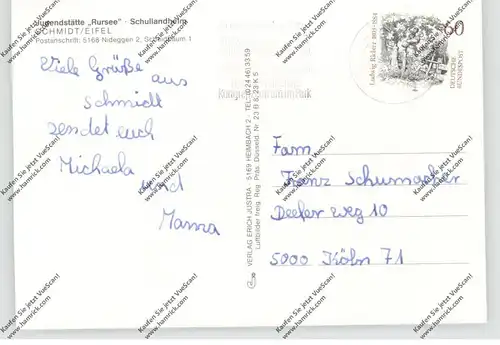 Jugendstätte „Rursee" - Schullandheim
SCHMIDT/EIFEL
Postanschrift: 5168 Nideggen 2, 1
Viele Grüße aus
Schmidt
sendet euch
Michaela
und
Mama
VERLAG ERICH JUSTRA · 5169 HEIMBACH 2 · TEL. (0 24 46) 33 59
Luftbilder freig. Reg. Präs. Düsseld. Nr. 23 B 8, 23 K 5
Ludwig Richter 1803-1884
60
DEUTSCHE
BUNDESPOST
Fam.
Franz Schumacher
Deeler Weg 10
5000 Köln 71
Kaufen Sie jetzt VueScan!
www.hamrick.com